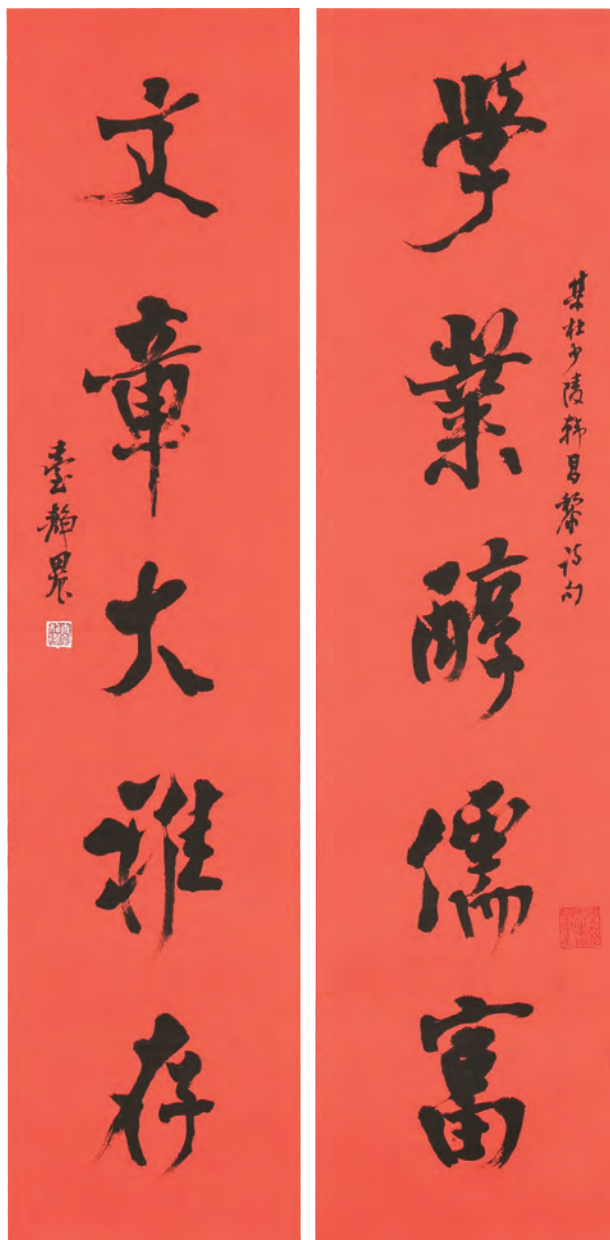 學業醇儒富
集杜少陵韩昌黎诗句
文章大雅存
臺靜農